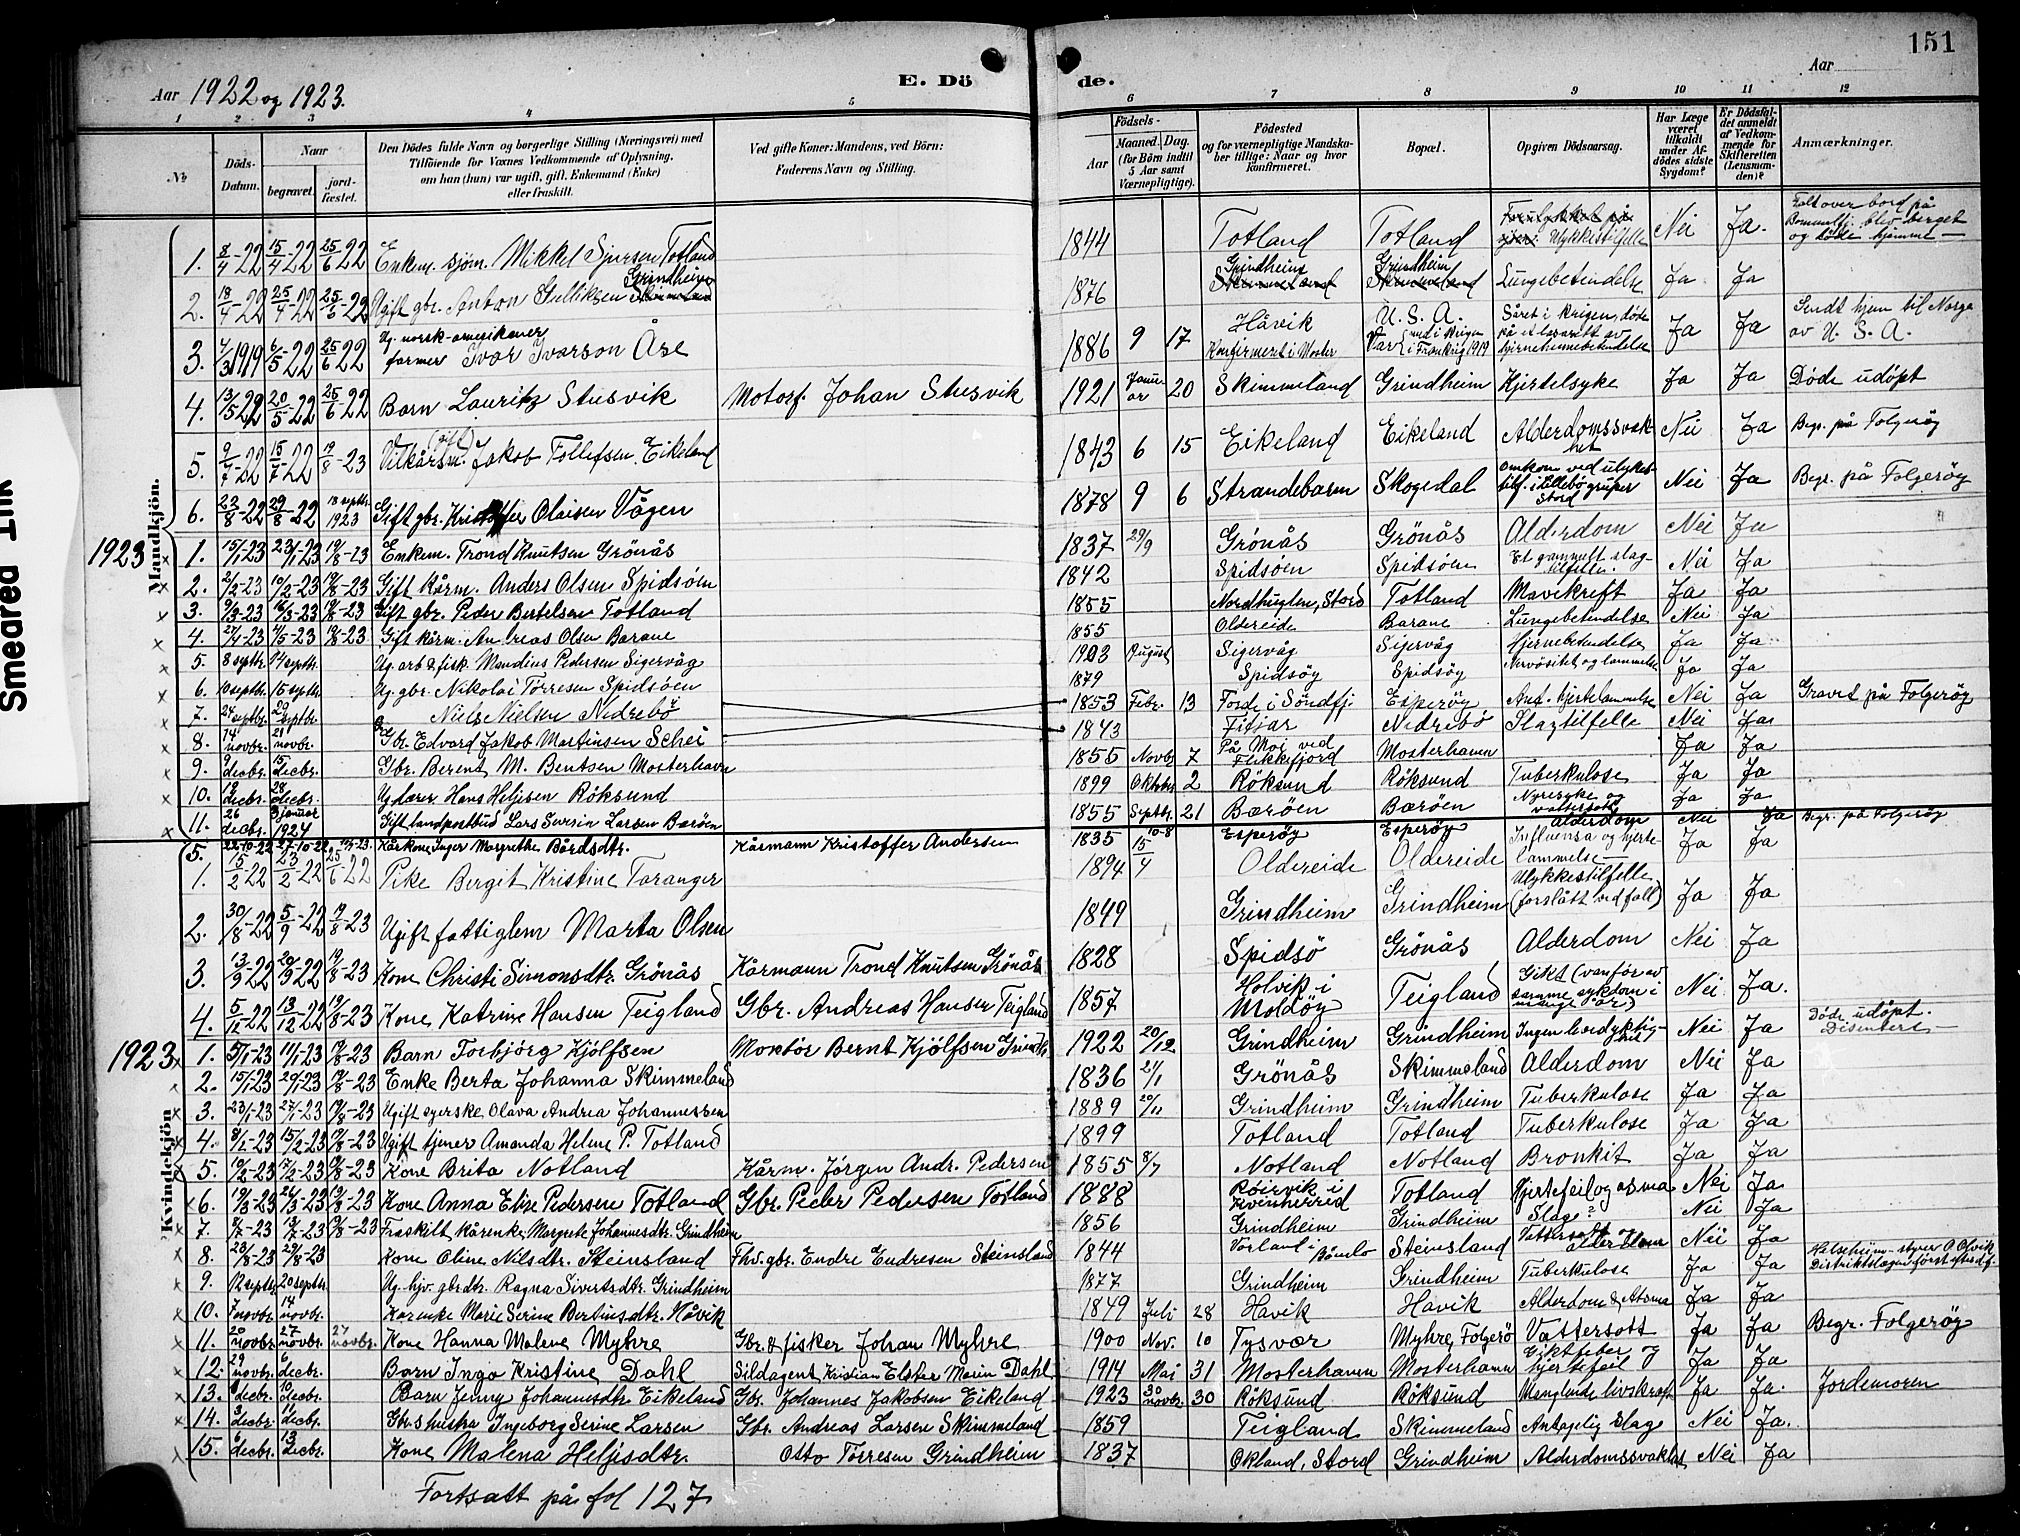 151
Aar 1922 og 1923.
E. Döde.
Aar
1 2 3 4 5 6 7 8 9 10 11 12
No
Döds-Datum.
Naar
begravet.
jordfæstet.
Den Dödes fulde Navn og borgerlige Stilling (Næringsvei) med
Tilföiende for Voxnes Vedkommende af Oplysning,
om han (hun) var ugift, gift, Enkemand (Enke)
eller fraskilt.
Ved gifte Koner: Mandens, ved Börn:
Faderens Navn og Stilling.
Födsels-
Aar
Maaned. Dag.
(for Börn indtil
5 Aar samt
Værnepligtige).
Födested
og for værnepligtige Mandskaber tillige: Naar og hvor
konfirmeret.
Bopæl.
Opgiven Dödsaarsag.
Har Læge
været
tilkaldt
under Afdödes sidste
Sygdom?
Er Dödsfaldet anmeldt
af Vedkommende for
Skifteretten
(Lensmanden)?
Anmærkninger.
Mandkjön.
1. 8/4-22 15/4-22 25/6 22 Enkem. sjöm. Mikkel Sjursen Totland 1844 Totland Totland Ulykkestilfelle Nei Ja. Falt over bord på Bommelfj. blev berget og döde hjemme
2. 18/4-22 25/4-22 25/6-22 Ugift gbr. Anton Gulliksen Grindheim 1876 Grindheim Grindheim Lungebetendelse Ja Ja
3. 4/3 1919 6/5-22 25/6 22 Ug. norsk-amerikaner farmer Ivar Ivarson Åse 1886 9 17 Håvik Konfirmert i Moster U.S.A. Var med i krigen i Frankrig 1919 Såret i krigen, döde på et lasarett av hjernehinnebetendelse Ja Ja Sendt hjem til Norge av U.S.A.
4. 13/5 22 20/5-22 25/6 22 Barn Lauritz Stusvik Motorf. Johan Stusvik 1921 Januar 20 Skimmeland Grindheim Kjertelsyke Ja Ja Döde udöpt
5. 9/7-22 15/7-22 19/8-23 Vilkårsm. (gift) Jakob Tollefsen Eikeland 1843 6 15 Eikeland Eikeland Alderdomssvakhet Nei Ja Begr. på Folgeröy
6. 23/8-22 29/8-22 18 septbr. 1923 Gift gbr. Kristoffer Olaisen Vågen 1878 9 6 Strandebarm Skogedal Omkom ved ulykkestilf. i Lillebö gruper Stord Nei Ja Begr. på Folgeröy
1923
1. 15/1-23 23/1-23 19/8-23 Enkem. Trond Knutsen Grönås 1837 29/9 Grönås Grönås Alderdom Nei Ja
2. 2/2-23 10/2-23 19/8-23 Gift kårm. Anders Olsen Spidsöen 1842 Spidsöen Spidsöen Et gammelt slagtilfelle. Nei Ja
3. 9/3-23 16/3-23 19/8-23 Gift gbr. Peder Bertelsen Totland 1855 Nordhuglen, Stord Totland Mavekreft Ja Ja
4. 27/4-23 4/5-23 19/8-23 Gift kårm. Andreas Olsen Barane 1855 Oldereide Barane Lungebetendelse Nei Ja
5. 8 septbr. 14 septbr. Ug. arb & fisk. Mandius Pedersen Sigervåg 1903 August Sigervåg Sigervåg Hjernebetendelse Ja Ja
6. 10 septbr. 15 septbr. Ug. gbr. Nikolai Törresen Spidsöen 1879 Spidsöy Spidsöy Nervösitet og lammelse Ja Ja
7. 24 septbr. 29 septbr. Niels Nielsen Nedrebö 1853 Febr. 13 Förde i Söndfj. Esperöy Ant. hjertelammelse Nei Ja Gravet på Folgeröy
8. 14 novbr. 21 novbr. Gbr. Edvard Jakob Martinsen Schei 1843 Fitjar Nedrebö Slagtilfelle Nei Ja
9. 9 decbr. 15 decbr. Gbr. Berent M. Bentsen Mosterhavn 1855 Novbr 7 På Moi ved Flekkefjord Mosterhamn Ja Ja
10. 19 decbr. 28 decbr. Ug lærer Hans Heljesen Röksund 1899 Oktober 2 Röksund Röksund Tuberkulose Ja Ja
11. 26 decbr. 3 januar 1924 Gift landpostbud Lars Severin Larsen Baröen 1855 Septbr. 21 Bæröen Bæröen Nyresyke og vattersott Ja Ja
Kvindekjön
5. 22-10-22 27-10-22 Kårkone Inger Margrethe Bårdsdtr. Kårmann Kristoffer Andersen 1835 10-8 Esperöy Esperöy alderdom Nei Ja Begr. på Folgeröy
1. 15/2-22 23/2-22 25/6-22 Pike Bergit Kristine Taranger 1894 15/4 Oldereide Oldereide Influensa og hjertelammelse Ja Ja
2. 30/8-22 5/9-22 19/8-23 Ugift fattiglem Marta Olsen 1849 Grindheim Grindheim Ulykkestilfelle (forslått ved fall) Ja Ja
3. 13/9-22 20/9-22 19/8-23 Kone Christi Simonsdtr. Grönås Kårmann Trond Knutsen Grönås 1828 Spidsö Grönås Alderdom Nei Ja
4. 5/12-22 13/12-22 19/8-23 Kone Katrine Hansen Teigland Gbr. Andreas Hansen Teigland 1857 Holvik i Moldöy Teigland Gikt (vanför av samme sykdom i mange år) Nei Ja.
1923
1. 5/1-23 11/1-23 19/8-23 Barn Torbjörg Kjölfsen Montör Bernt Kjölfsen Grindh. 1922 20/12 Grindheim Grindheim Ingen levedyktighet Nei Ja Döde udöpt.
2. 15/1-23 20/1-23 19/8-23 Enke Berta Johanna Skimmeland 1836 21/1 Grönås Skimmeland Alderdom Nei Ja
3. 23/1-23 27/1-23 19/8-23 Ugift syerske Olava Andrea Johannessen 1889 20/11 Grindheim Grindheim Tuberkulose Ja Ja
4. 8/2-23 15/2-23 19/8-23 Ugift tjener Amanda Helene P. Totland 1899 Totland Totland Tuberkulose Ja Ja
5. 10/2-23 17/2-23 19/8-23 Kone Brita Notland Kårm. Jörgen Andr. Pedersen 1855 8/7 Notland Notland Bronkit Ja Ja
6. 19/3-23 26/3-23 19/8-23 Kone Anna Elise Pedersen Totland Gbr. Peder Pedersen Totland 1888 Röirvik i Kvinherred Totland Hjertefeil og asma Nei Ja
7. 8/7-23 13/7-23 19/8-23 Fraskilt kårenke Margrete Johannesdtr. Grindheim 1856 Grindheim Grindheim Slag? Nei Ja
8. 20/8-23 29/8-23 Kone Oline Nilsdtr. Steinsland Fhv. gbr. Endre Endresen Steinsland 1844 Vorland i Bömlo Steinsland Vattersott alderdom Nei Ja
9. 12 septbr 20 septbr. Ug. hjv. gbrdtr. Ragna Sivertsdtr. Grindheim 1877 Grindheim Grindheim Tuberkulose Ja Ja
10. 7 novbr. 14 novbr. Kårenke Marie Serine Bertinsdtr. Håvik 1849 Juli 28 Håvik Håvik Alderdom & Atsma Ja Ja
11. 20 novbr. 27 novbr. 27 novbr. Kone Hanna Malene Myhre Gbr. & fisker Johan Myhre 1900 Nov. 10 Tysvær Myhre, Folgerö Vattersott Ja Ja Begr. Folgeröy
12. 29 novbr. 6 decbr. Barn Inga Kristine Dahl Sildagent Kristian Elster Morin Dahl 1914 Mai 31 Mosterhamn Mosterhamn Giktfeber og hjertefeil Ja Ja
13. decbr. 10 decbr. Barn Jenny Johannesdtr Eikeland Gbr. Johannes Jakobsen Eikeland 1923 30 novbr. 30 Röksund Röksund Manglende livskraft Ja Ja. Jordemoren
14. 3 decbr. 11 decbr. Gbr.s hustru Ingeborg Serine Larsen Gbr. Andreas Larsen Skimmeland 1859 Teigland Skimmeland Antagelig Slag Nei Ja.
15. 6 decbr. 13 decbr. Kone Malena Heljesdtr. Osto Törresen Grindheim 1837 Økland, Stord Grindheim Alderdomssvakhet Nei Ja
Fortsatt på fol 127
Smeared Ink